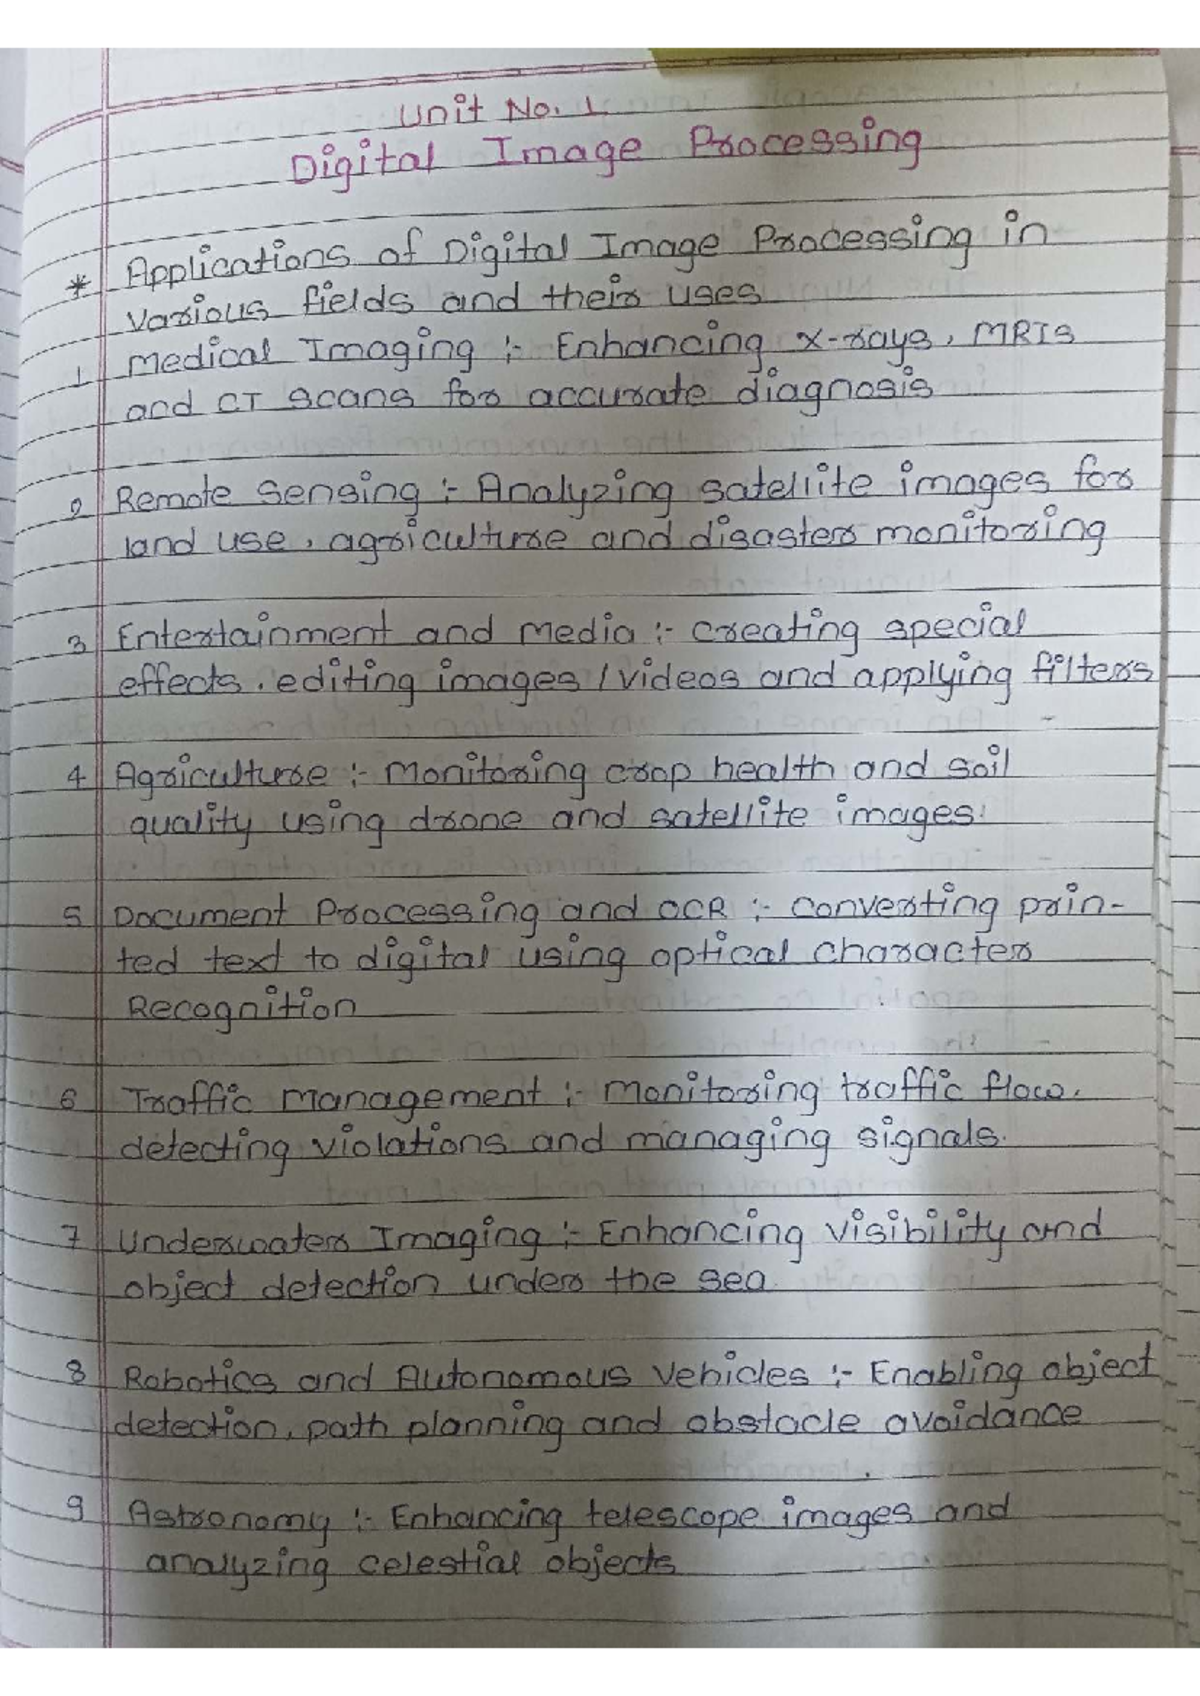 Unit No. 1.
Digital Image Processing
* Applications of Digital Image Processing in
various fields and their uses
1 Medical Imaging :- Enhancing x-rays, MRIs
and CT scans for accurate diagnosis
2 Remote sensing :- Analyzing satellite images for
land use, agriculture and disaster monitoring
3 Entertainment and media :- creating special
effects, editing images / videos and applying filters
4 Agriculture :- Monitoring crop health and soil
quality using drone and satellite images.
5 Document Processing and OCR :- Converting prin-
ted text to digital using optical character
Recognition
6 Traffic management :- Monitoring traffic flow,
detecting violations and managing signals.
7 Underwater Imaging :- Enhancing visibility and
object detection under the sea.
8 Robotics and Autonomous vehicles :- Enabling object
detection, path planning and obstacle avoidance
9 Astronomy :- Enhancing telescope images and
analyzing celestial objects